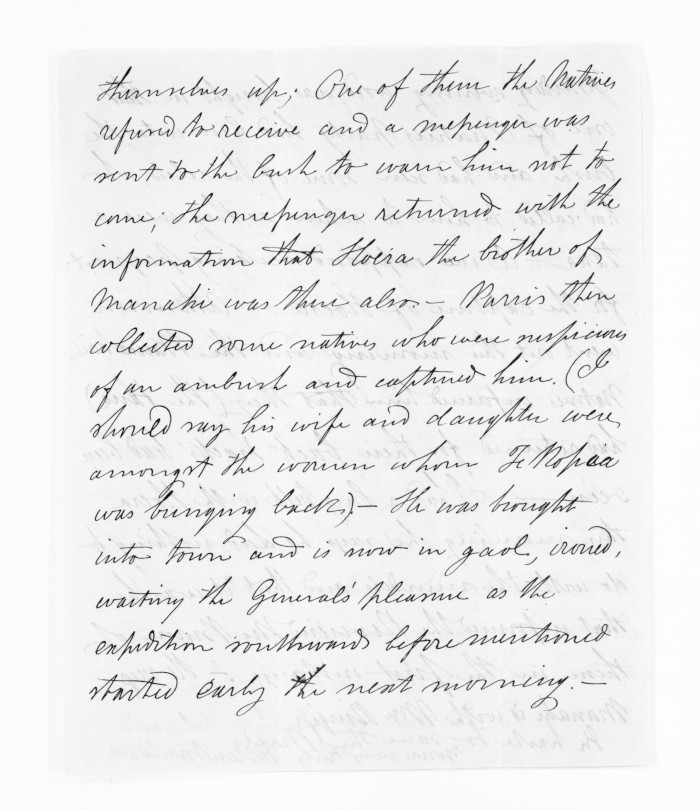 themselves up; One of them the Natives
refused to receive and a messenger was
sent to the bush to warn him not to
come; the messenger returned with the
information that Hoera the brother of
Manahi was there also. — Parris then
collected some natives who were suspicious
of an ambush and captured him. (I
should say his wife and daughter were
amongst the women whom Te Ropiha
was bringing back) — He was brought
into town and is now in gaol, ironed,
waiting the General's pleasure as the
expedition southwards before mentioned
started early the next morning. —